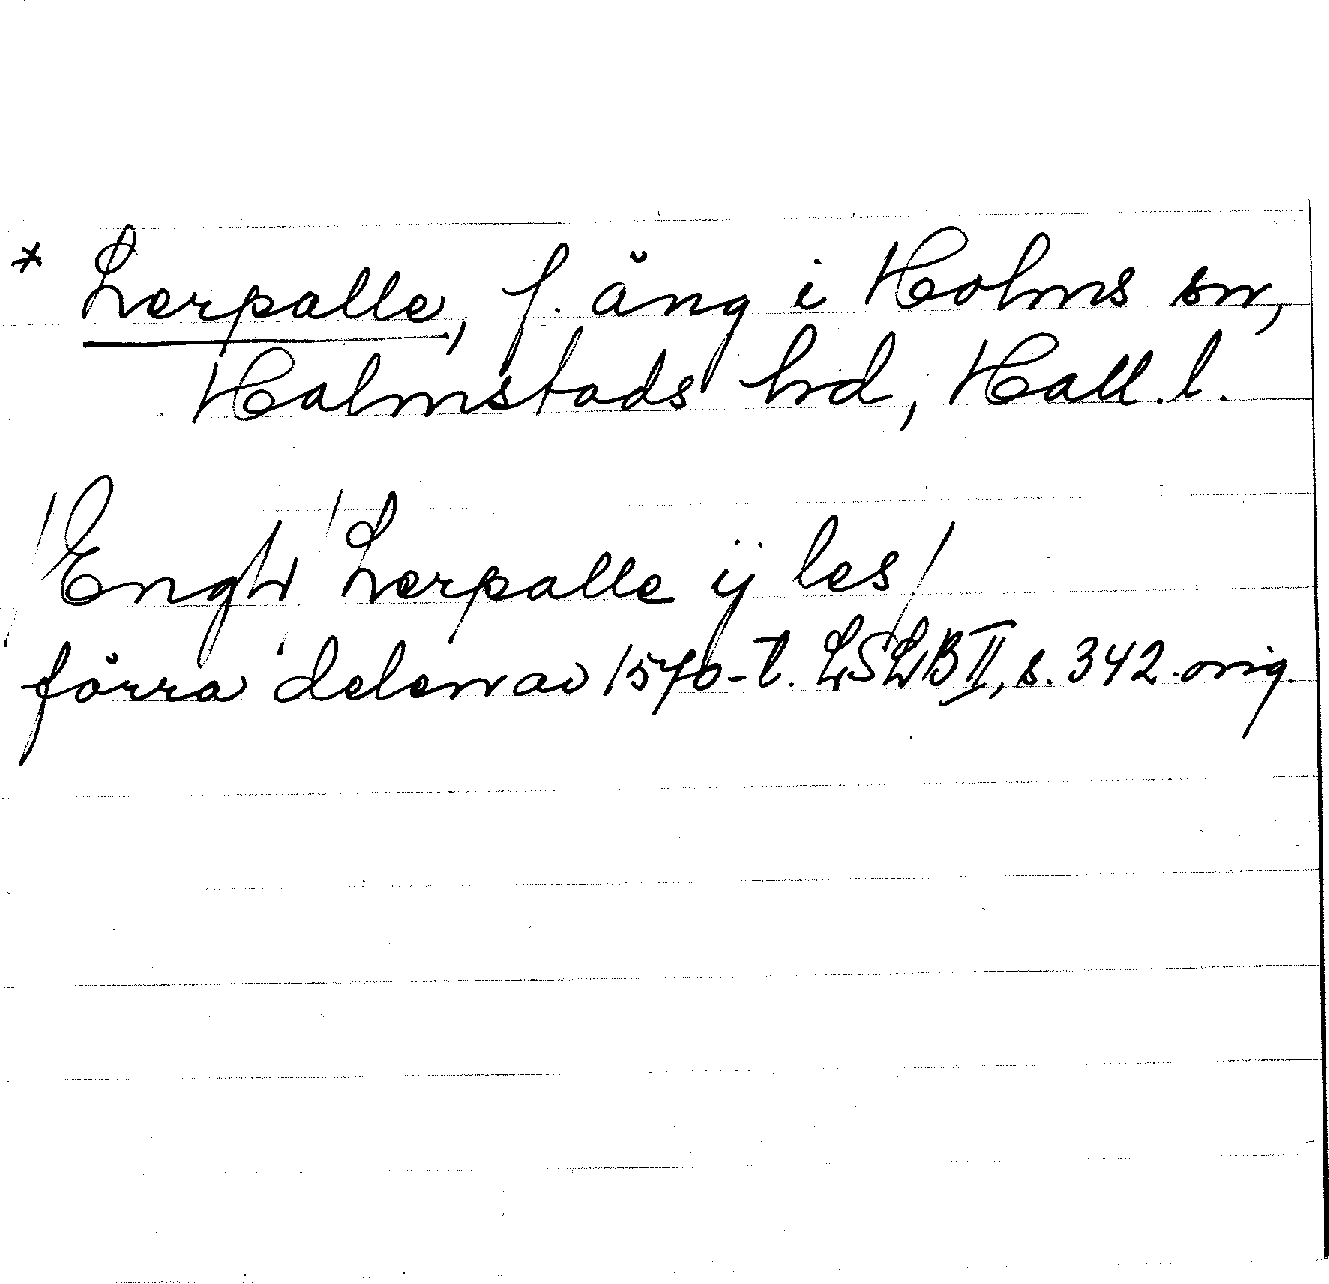 * Lerpalle, f. äng i Holms sn,
Halmstads hrd, Hall. l.
/Engh/ Lerpalle ÿ les/
förra delen av 1570-t. LSLB II, s. 342. orig.